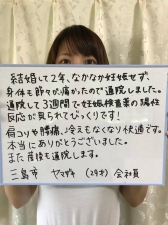 結婚して2年、なかなか妊娠せず、
身体も節々が痛かったので通院しました。
通院して3週間で妊娠検査薬の陽性
反応が見られてびっくりです!
肩コリや腰痛、冷えもなくなり快適です。
本当にありがとうございました。
また産後も通院します。
三島市 ヤマザキ (29才) 会社員